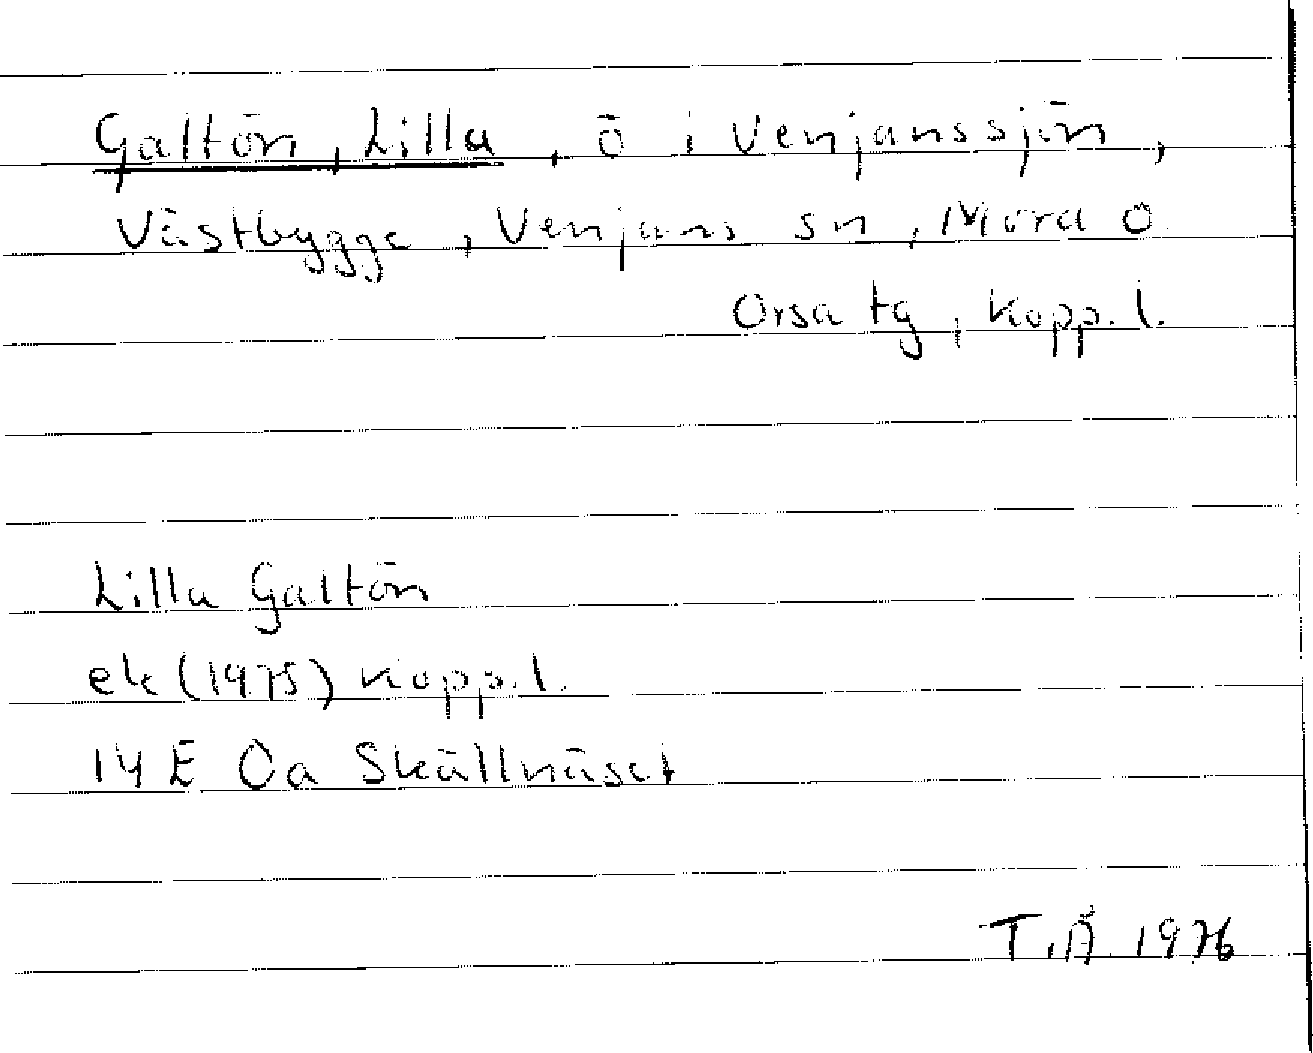 Galtön, Lilla, ö i Venjanssjön,
Västbygge, Venjans sn, Mora o
Orsa tg, Kopp. l.
Lilla Galtön
ek (1975) Kopp. l.
14 E 0a Skällnäset
T. Å. 1976